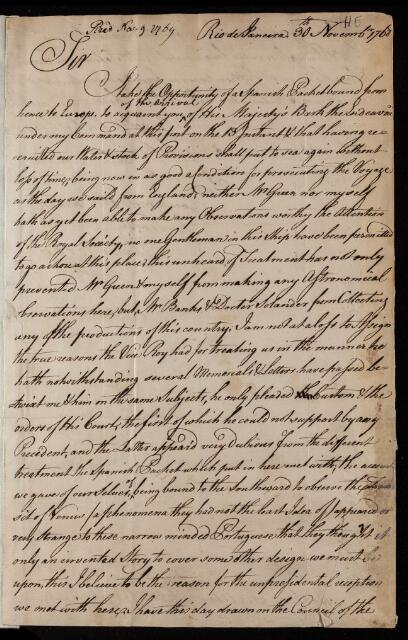 Read Nov. 9. 1769
Rio de Janeira 30th Novemb.r 1768
Sir
I take the Opportunity of a Spanish Packet bound from
hence to Europe. to acquaint you, of the arrival of His Majesty's Bark the Endeavour
under my Command at this port on the 13th Instant & that having re-
cruited our Water & Stock of Provisions shall put to sea again without
loss of time; being now in as good a for prosecuting the Voyage
as the day we sail'd from England, neither Mr Green nor myself
hath as yet been able to make any Observations worthy the Attention
of the Royal Society, as no one Gentleman in this Ship have been permitted
to go ashore at this place; this unheard of Treatment has not only
prevented Mr Green & myself from making any Astronomical
observations here, but Mr Banks & Doctor Solander from Collecting
any of the productions of this country. I am not at a loss to Assign
the true reasons the Vice Roy had for treating us in the manner he
hath notwithstanding several Memorials & Letters have passed be-
twixt me & him on the same Subjects, he only pleaded Custom & the
orders of his Court; the first of which he could not support by any
Precident, and the Latter appear'd very dubious from the different
treatment the Spanish Packet which put in here met with, the account
we gave of our Selves, of being bound to the Southward to observe the
of Venus (a phenomena they had not the least Idea of) appeared so
very strange to these narrow minded Portuguese that they thought it
only an invented Story to cover some other design we must be
upon, this I believe to be the reason for the unpresidental reception
we met with here. I have this day drawn on the Council of the